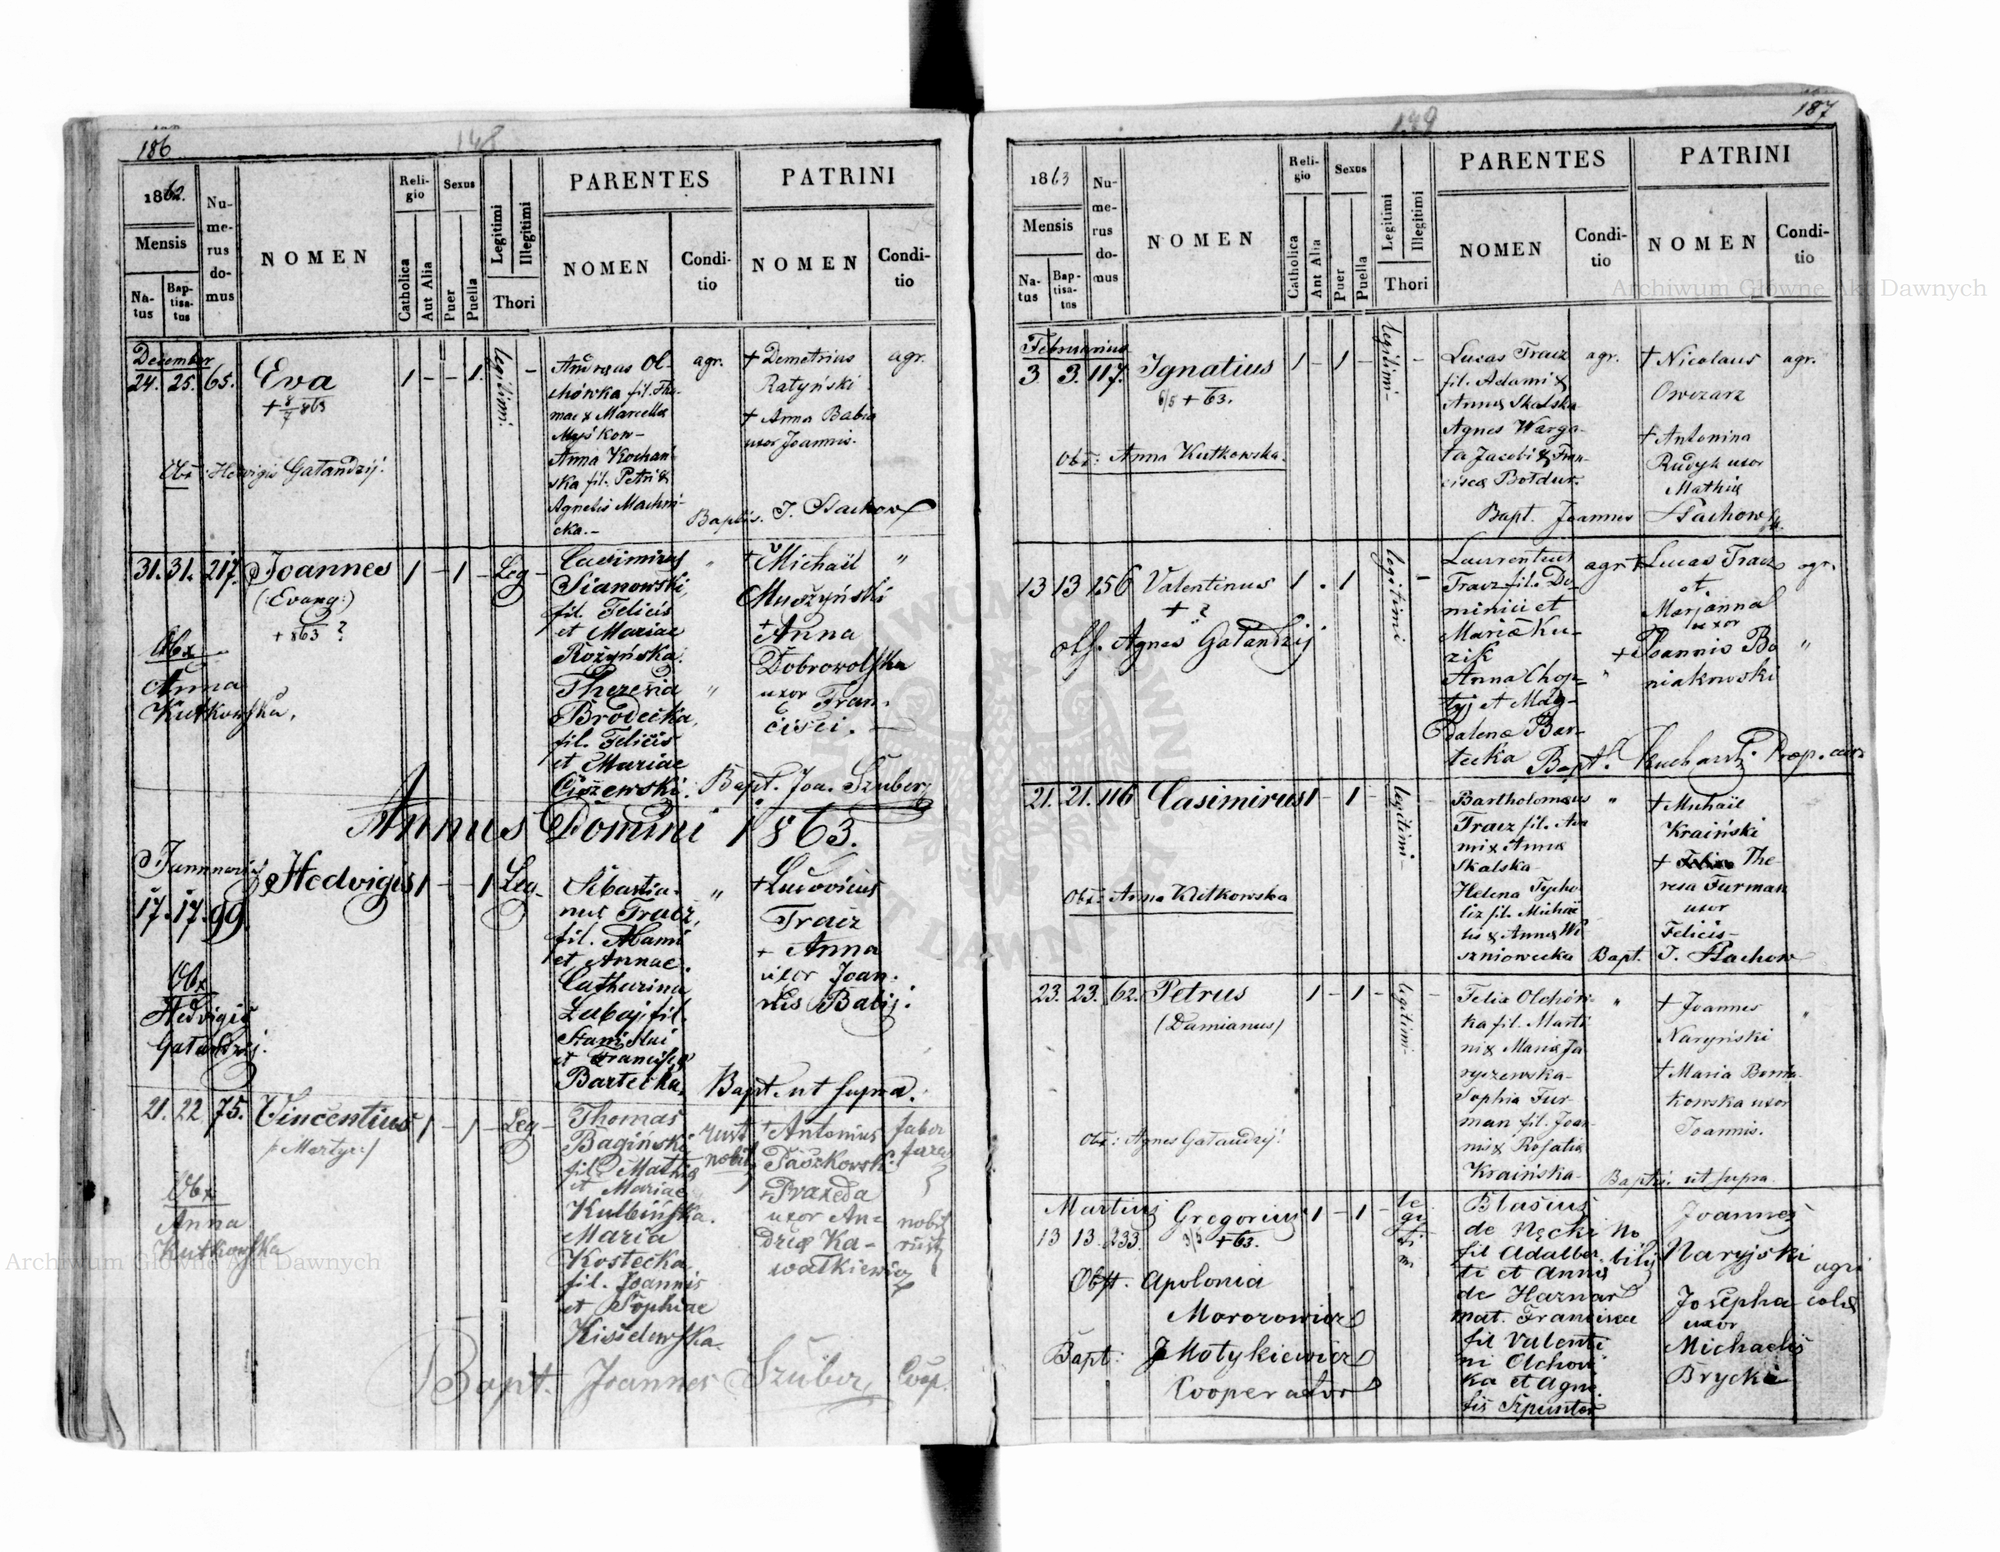 186
148
1862.
Mensis
Natus
Baptisatus
Numerus domus
NOMEN
Religio
Catholica
Aut Alia
Sexus
Puer
Puella
Legitimi
Illegitimi
Thori
PARENTES
NOMEN
Conditio
PATRINI
NOMEN
Conditio
December
24. 25. 65. Eva 1 - - 1. legitimi. -
+ 8/7 863
Obx: Hedvigis Gałandzij.
Andreas Ol-
chówka fil. Tho-
mae & Marcella
Myśkow-
Anna Kochań-
ska fil. Petri &
Agnetis Machni-
cka.-
agr.
+ Demetrius
Ratyński
+ Anna Babia
uxor Joannis.
agr.
Baptis. J. Stachow
31. 31. 217. Joannes 1 - 1 - Leg -
(: Evang:)
+ 863 ?
Obx
Anna
Kutkowska.
Casimirus
Sianowski,
fil. Felicis
et Mariae
Rożyńska.
Theresia
Brodecka,
fil. Felicis
et Mariae
Ciszewski.
"
"
+ Michaël
Muszyński
+ Anna
Dobrowolska
uxor Fran-
cisci.
"
Bapt. Joa. Szuber
Annus Domini 1863.
Januarius
17. 17. 99 Hedvigis 1 - - 1 Leg -
Obx
Hedvigis
Gałandzij.
Sebastia-
nus Tracz,
fil. Adami
et Annae.
Catharina
Łabaj, fil.
Stanislai
et Francisca
Bartecka.
"
+ Ludovicus
Tracz
+ Anna
uxor Joan-
nis Babij.
Bapt. ut supra.
21. 22 75. Vincentius 1 - 1 - Leg -
/: Martyr:/
Obx
Anna
Kutkowska
Thomas
Bagiński
fil. Mathia
et Mariae
Kulbińska.
Maria
Kostecka,
fil. Joannis
et Sophiae
Kisielewska.
rust
nobil
+ Antonius
Paszkowski.
+ Praxeda
uxor An-
dreæ Ka-
walkiewicz
faber
nobil
rust
Bapt. Joannes Szuber, Coop.
187
149
1863
Mensis
Natus
Baptisatus
Numerus domus
NOMEN
Religio
Catholica
Aut Alia
Sexus
Puer
Puella
Legitimi
Illegitimi
Thori
PARENTES
NOMEN
Conditio
PATRINI
NOMEN
Conditio
Februarius
3 3. 117. Ignatius 1 - 1 - legitimi -
6/5 + 63.
Obx: Anna Kutkowska.
Lucas Tracz
fil. Adami &
Annæ Skalska
Agnes Warga-
ta Jacobi & Fran-
cisca Bołdur.
agr.
+ Nicolaus
Owczarz
+ Antonina
Rudyk uxor
Mathiæ
agr.
Bapt. Joannes Stachow
13 13 156 Valentinus 1 . 1 legitimi -
+ ?
obs. Agnes Gałandzij
Laurentius
Tracz fil. Do-
minici et
Mariæ Ku-
zik
Anna Chop-
tyj et Mag-
dalenæ Bar-
tecka
agr
"
+ Lucas Tracz
et
Marjanna
uxor
+ Joannis Bo
niakowski
agr.
"
Bapt.
21. 21. 116 Casimirus 1 - 1 - legitimi -
Obx: Anna Kutkowska
Bartholomæus
Tracz fil. Ada
mi & Annæ
Skalska
Helena Tycho
liz fil. Michaë
lis & Annæ Wi
szniowecka
"
+ Michaël
Kraiński
+ The-
resa Furman
uxor
Felicis-
Bapt. J. Stachow
23. 23. 62. Petrus 1 - 1 - legitimi -
(Damianus)
Obx: Agnes Gałandzij.
Felix Olchów-
ka fil. Marti
ni & Maria Ja
ryczewska-
Sophia Fur-
man fil. Joan-
nis & Rosalia
Kraińska-
"
+ Joannes
Naryński
+ Maria Bonia-
kowska uxor
Joannis.
"
Baptis: ut supra
Martius
13 13. 233. Gregorius 1 - 1 - legitimi
9/5 + 63.
Obst. Apolonia
Morozowicz
Bapt: J Motykiewicz
Cooperator
Blasius
de Nęcki
fil Adalber
ti et Annæ
de Harnar
mat. Francisca
fil Valenti
ni Olchow
ka et Agne
tis Szpuntor
No
bilis
Joannes
Naryjski
Josepha
uxor
Michaelis
Brycki
agri
colæ
Archiwum Główne Akt Dawnych
Archiwum Główne Akt Dawnych